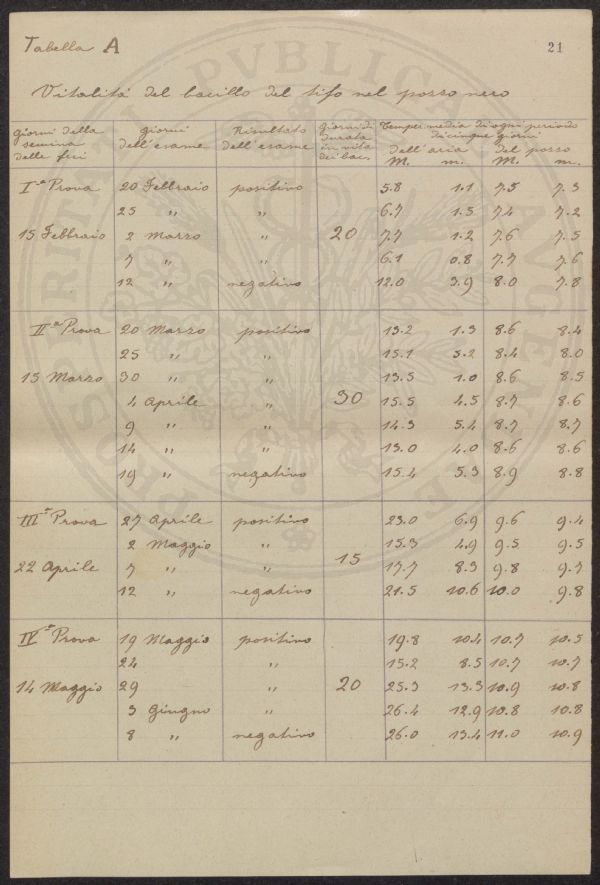 Tabella A
21
Vitalità del bacillo del tifo nel pozzo nero
giorni della semina delle feci | giorni dell'esame | Risultato dell'esame | giorni di durata in vita dei bac. | Temper. media di ogni periodo di cinque giorni
dell'aria | del pozzo
M. m. | M. m.
Iª Prova 20 Febbraio positivo 5.8 1.1 7.5 7.3
25 " " 6.7 1.5 7.4 7.2
15 Febbraio 2 Marzo " 20 7.7 1.2 7.6 7.5
7 " " 6.1 0.8 7.7 7.6
12 " negativo 12.0 3.9 8.0 7.8
IIª Prova 20 Marzo positivo 13.2 1.3 8.6 8.4
25 " " 15.1 5.2 8.4 8.0
15 Marzo 30 " " 13.5 1.0 8.6 8.5
4 Aprile " 30 15.5 4.5 8.7 8.6
9 " " 14.3 5.4 8.7 8.7
14 " " 13.0 4.0 8.6 8.6
19 " negativo 15.4 5.3 8.9 8.8
IIIª Prova 27 Aprile positivo 23.0 6.9 9.6 9.4
2 Maggio " 15.3 4.9 9.5 9.5
22 Aprile 7 " " 15 17.7 8.3 9.8 9.7
12 " negativo 21.5 10.6 10.0 9.8
IVª Prova 19 Maggio positivo 19.8 10.4 10.7 10.5
24 " 15.2 8.5 10.7 10.7
14 Maggio 29 " 20 25.3 13.3 10.9 10.8
3 Giugno " 26.4 12.9 10.8 10.8
8 " negativo 26.0 13.4 11.0 10.9